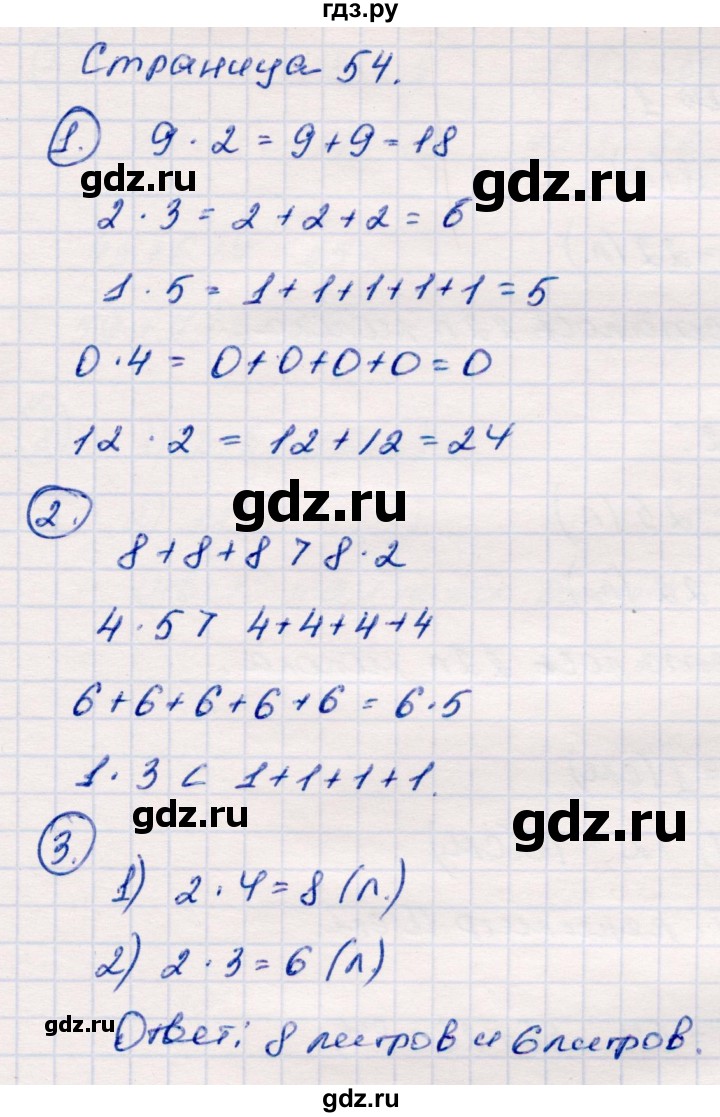 гдз.ру
Страница 54.
1. 9 · 2 = 9 + 9 = 18
gdz.ru
gdz.ru
2 · 3 = 2 + 2 + 2 = 6
1 · 5 = 1 + 1 + 1 + 1 + 1 = 5
0 · 4 = 0 + 0 + 0 + 0 = 0
12 · 2 = 12 + 12 = 24
2. gdz.ru
8 + 8 + 8 > 8 · 2
4 · 5 > 4 + 4 + 4 + 4
6 + 6 + 6 + 6 + 6 = 6 · 5
1 · 3 < 1 + 1 + 1 + 1.
gdz.ru
gdz.ru
3.
1) 2 · 4 = 8 (л.)
2) 2 · 3 = 6 (л.)
gdz.ru
Ответ: 8 литров и 6 литров.
gdz.ru